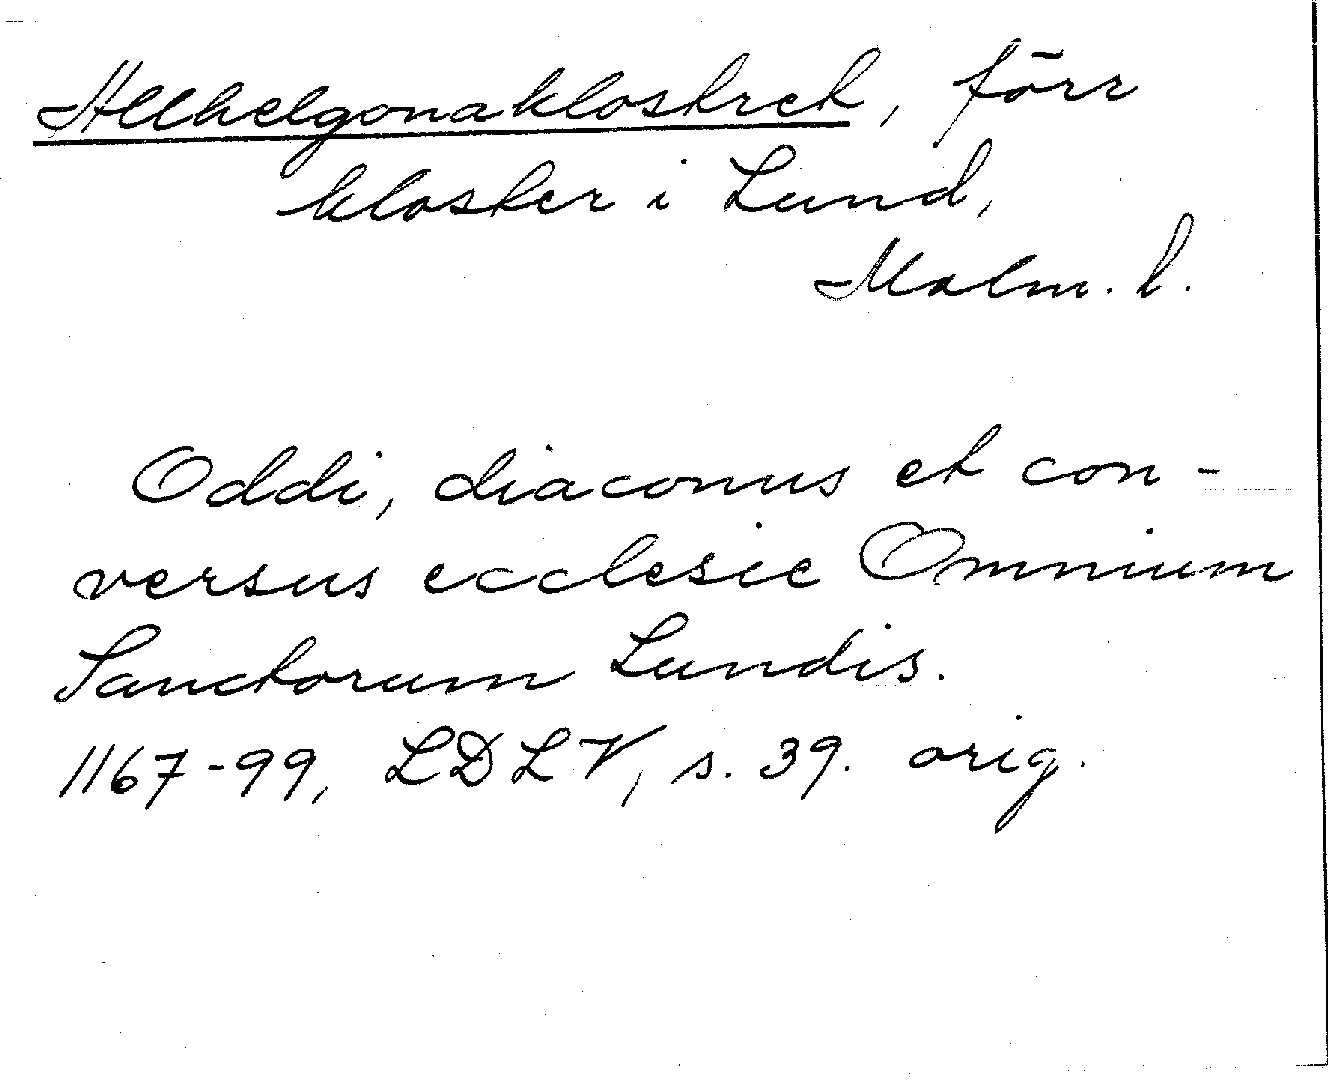 Allhelgonaklostret, förr
kloster i Lund,
Malm. l.
Oddi, diaconus et con-
versus ecclesie Omnium
Sanctorum Lundis.
1167-99, LDLV, s. 39. orig.